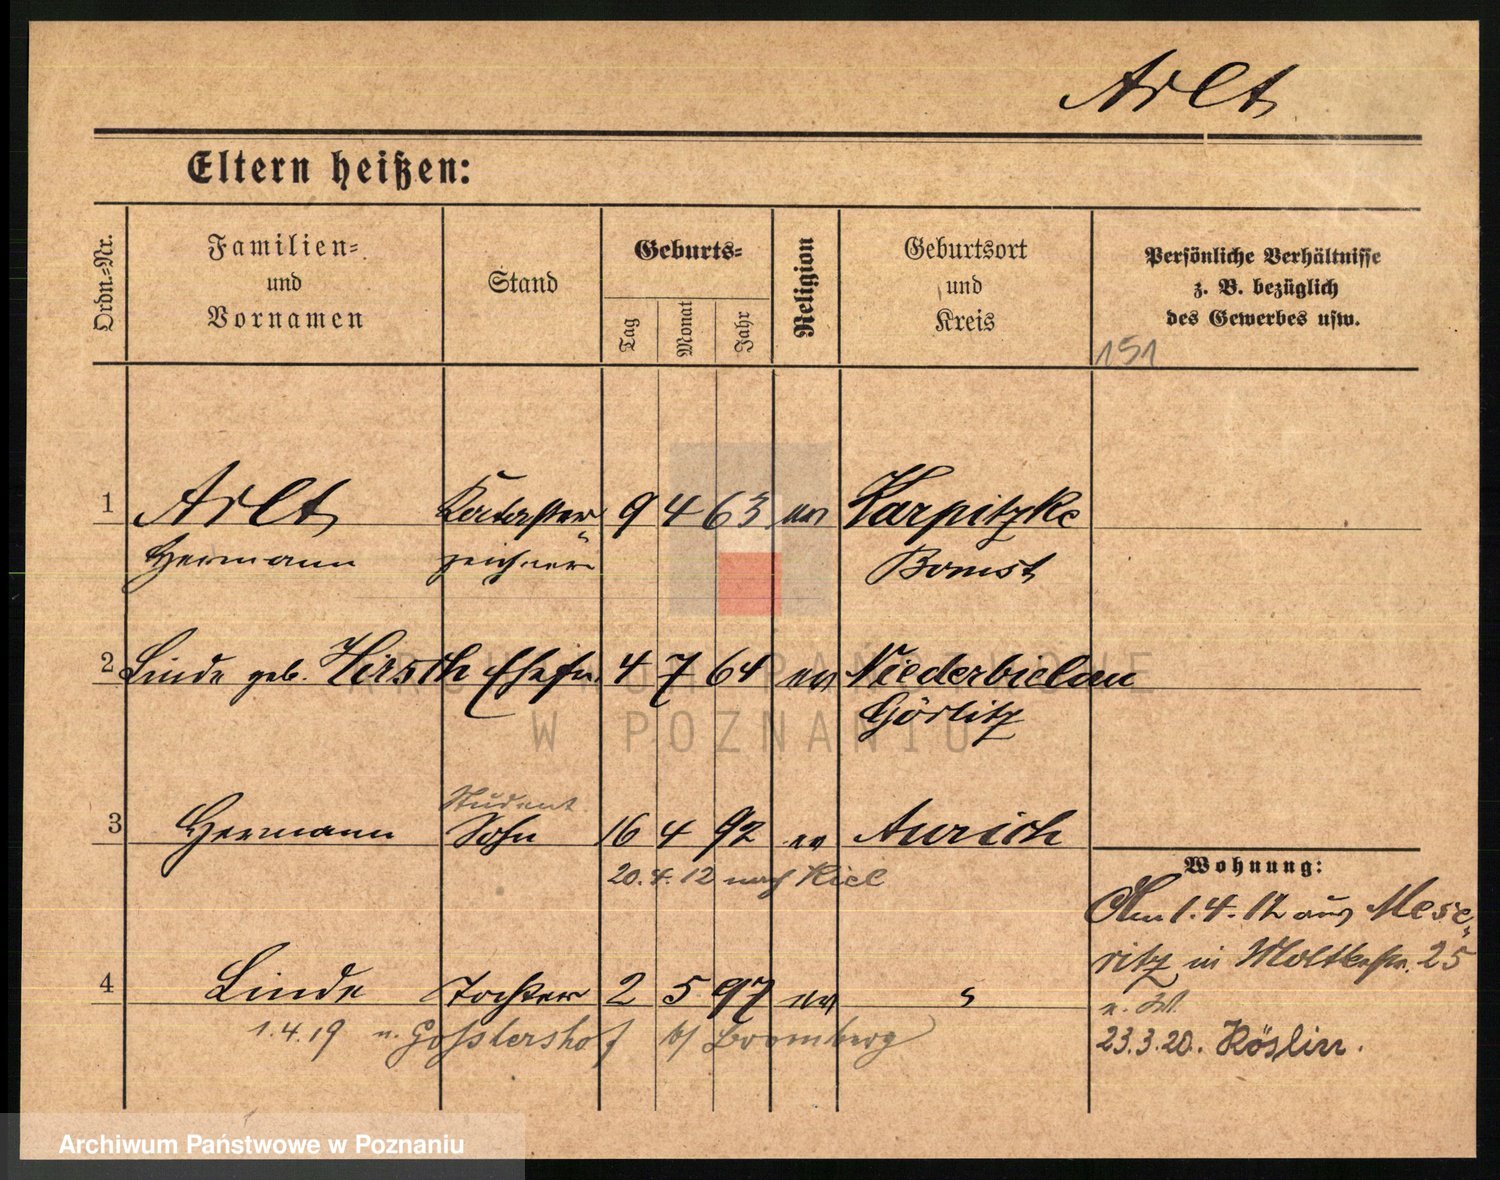 Arlt
Eltern heißen:
Ordn.-Nr.
Familien-
und
Vornamen
Stand
Geburts-
Tag
Monat
Jahr
Religion
Geburtsort
und
Kreis
Persönliche Verhältnisse
z. B. bezüglich
des Gewerbes usw.
151
1 Arlt Kataster 9 4 63 ev Karpitzko
Hermann zeichner Bomst
2 Linde geb. Hirsch Ehefr. 4 7 64 ev Niederbielau
Görlitz
Student
3 Hermann Sohn 16 4 92 ev Aurich
20.4.12 nach Kiel
4 Linde Tochter 2 5 97 ev "
1.4.19 n. Gosslershof b/ Bromberg
Wohnung:
Am 1.4.12 aus Mese
ritz in Moltkestr. 25
23.3.20. Köslin.
ARCHIWUM PAŃSTWOWE
W POZNANIU
Archiwum Państwowe w Poznaniu